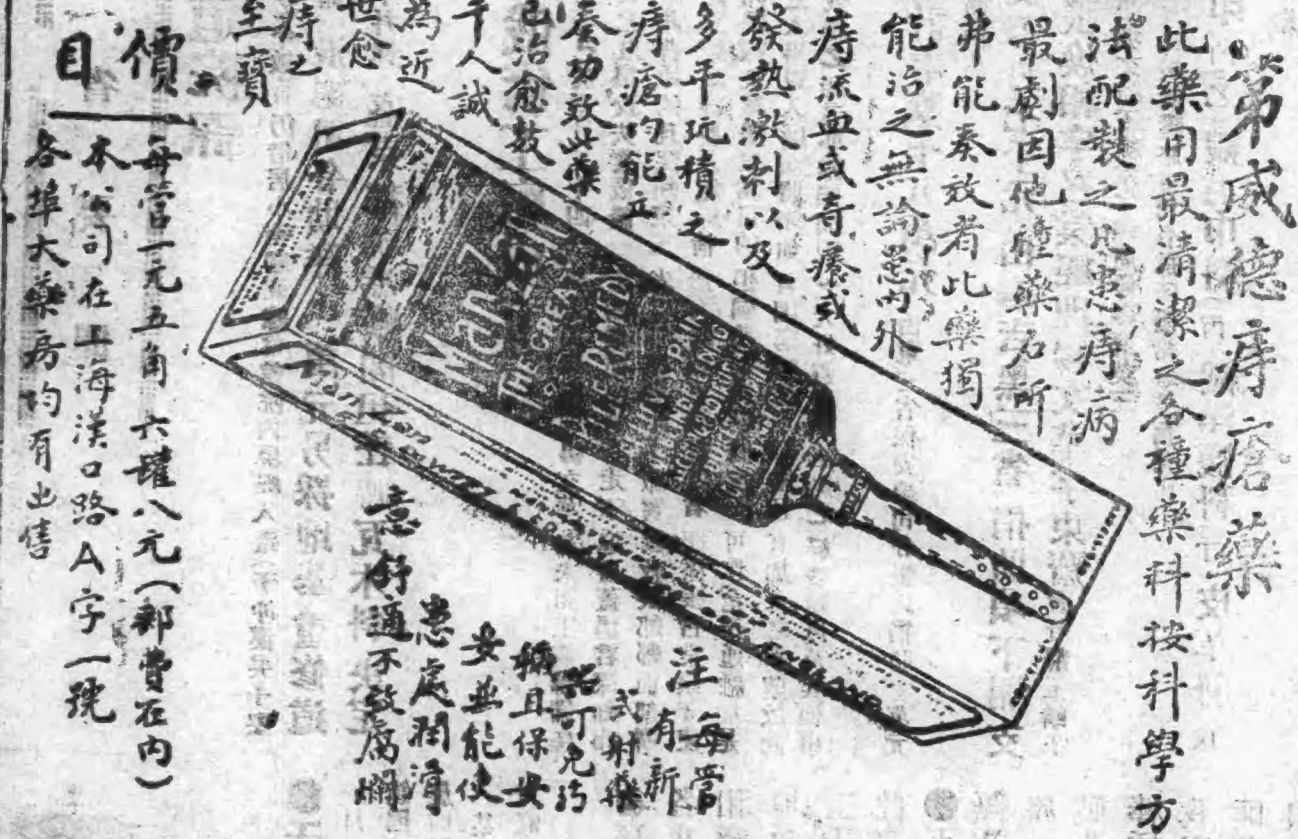 第威德痔瘡藥
此藥用最清潔之各種藥科按科學方
法配製之凡患痔病
最劇因他種藥石所
弗能奏效者此藥獨
能治之無論患內外
痔流血或奇癢或
發熱激刺以及
多年玩積之
痔瘡均能立
奏功效此藥
已治愈數
千人誠
為近
世愈
痔之
至寶
Man Zan
THE GREAT
PILE REMEDY
PAIN
ENGLAND
注
每管
有新
式射藥
可免
稱且保安
妥並能使
患處潤滑
意舒通不致腐爛
價目
每管一元五角 六罐八元(郵費在內)
本公司在上海漢口路A字一號
各埠大藥房均有出售